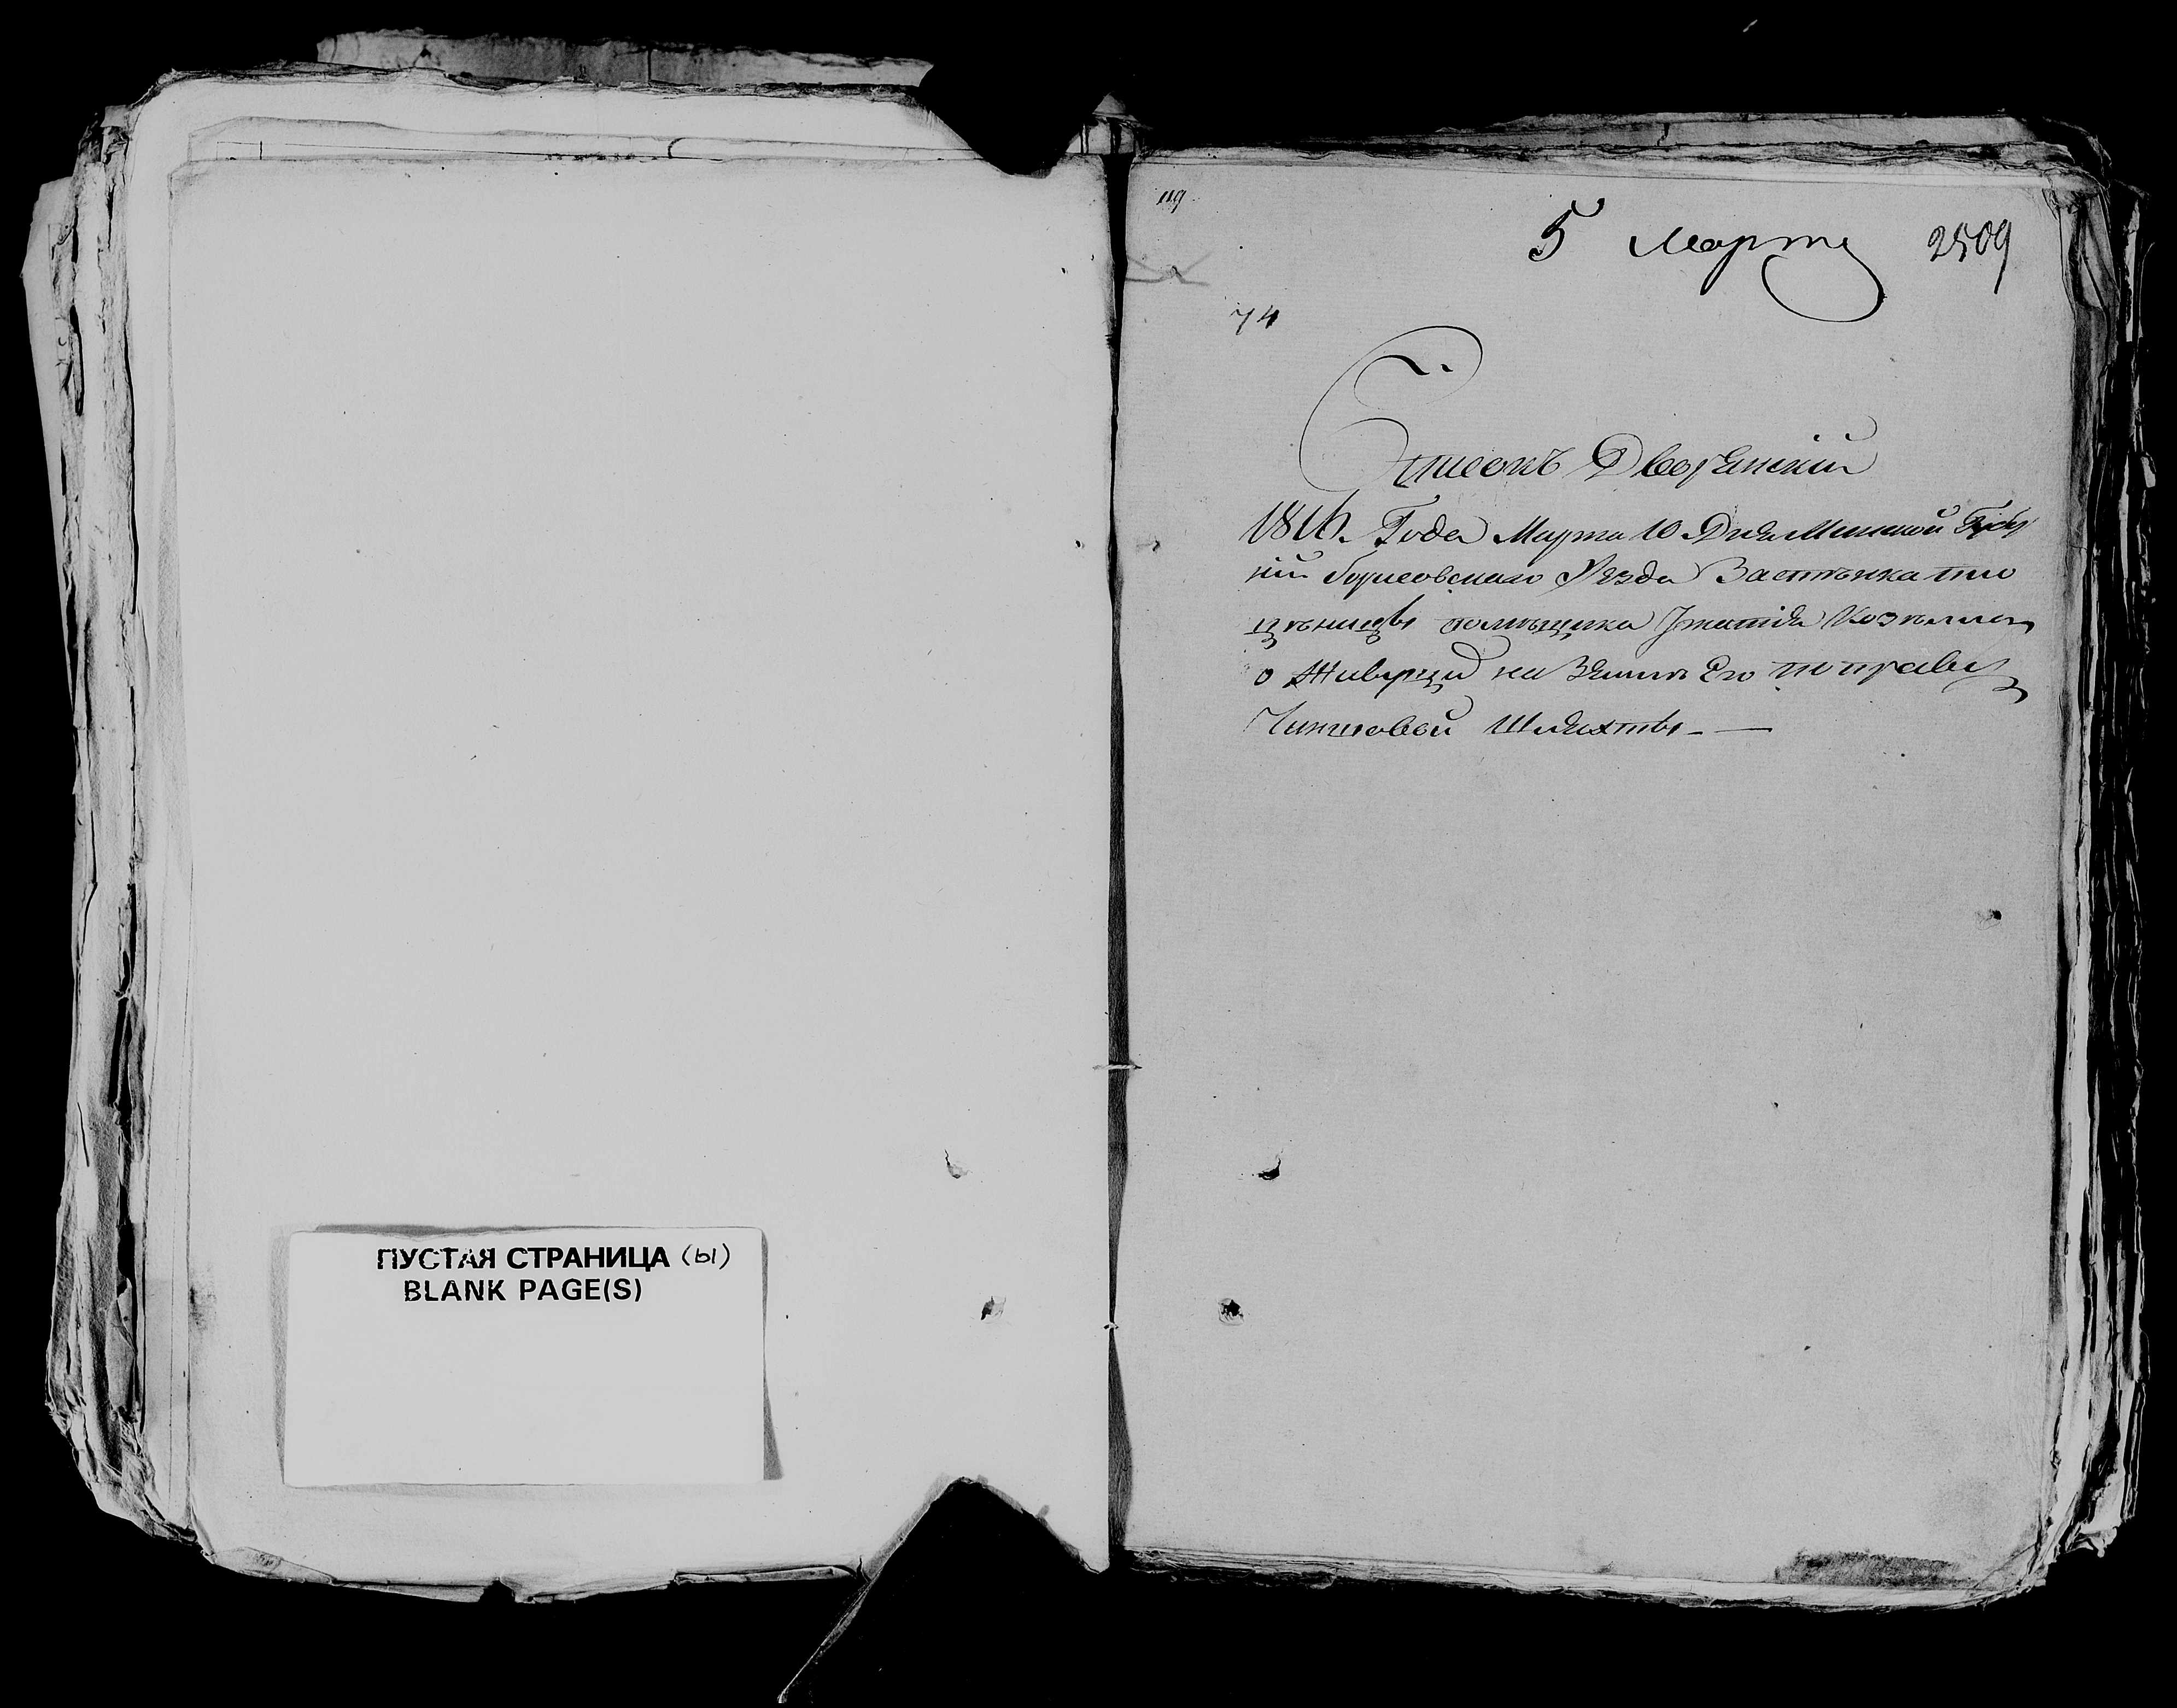 ПУСТАЯ СТРАНИЦА (ы)
BLANK PAGE(S)
119
5 Марта 2509
74
Списокъ Дворянскій
1816. Года Марта 10 Дня Минской Губер
ніи борисовскаго Уезда Застѣнка
помѣщика Игнатія
о Живущей на Землѣ Его по праву
Чиншовой Шляхты. —